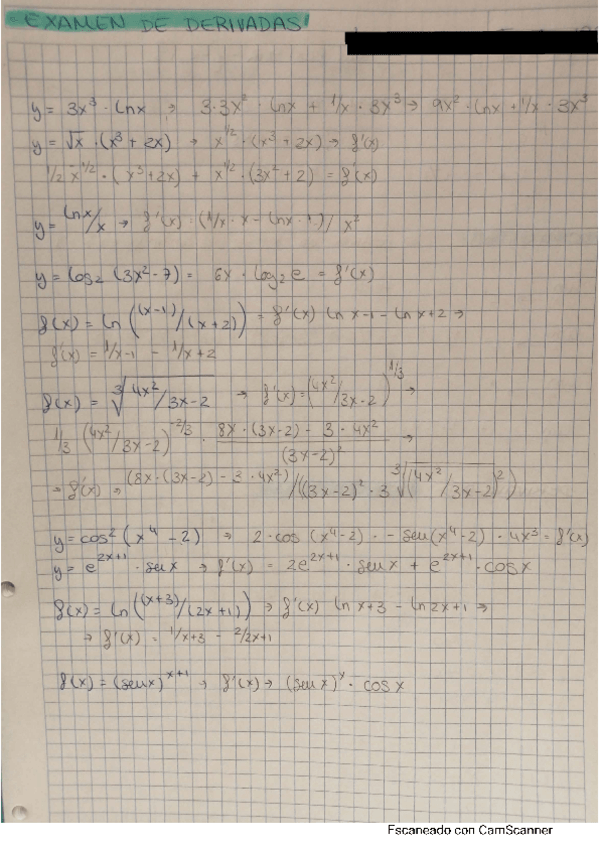 EXAMEN DE DERIVADAS
y = 3x³ · lnx ; 3·3x² · lnx + 1/x · 3x³ → 9x² · lnx + 1/x · 3x³
y = √x · (x³ + 2x) → x^1/2 · (x³ + 2x) → f'(x)
1/2 x^-1/2 · (x³ + 2x) + x^1/2 · (3x² + 2) = f'(x)
y = lnx/x → f'(x) = (1/x · x - lnx · 1) / x²
y = log₂ (3x² - 7) = 6x · log₂ e = f'(x)
f(x) = ln ((x-1)/(x+2)) = f'(x) ln x-1 - ln x+2 →
f'(x) = 1/x-1 - 1/x+2
f(x) = ³√4x²/3x-2 → f'(x) = (4x²/3x-2)^1/3 →
1/3 (4x²/3x-2)^-2/3 · 8x · (3x-2) - 3 · 4x² / (3x-2)² →
→ f'(x) → (8x · (3x-2) - 3 · 4x²) / ((3x-2)² · 3 ³√(4x²/3x-2)²)
y = cos² (x⁴ - 2) → 2 · cos (x⁴-2) · - sen (x⁴-2) · 4x³ = f'(x)
y = e^2x+1 · senx → f'(x) = 2e^2x+1 · senx + e^2x+1 · cosx
f(x) = ln ((x+3)/(2x+1)) → f'(x) ln x+3 - ln 2x+1 →
→ f'(x) = 1/x+3 - 2/2x+1
f(x) = (senx)^x+1 → f'(x) → (senx)^x · cosx
Escaneado con CamScanner